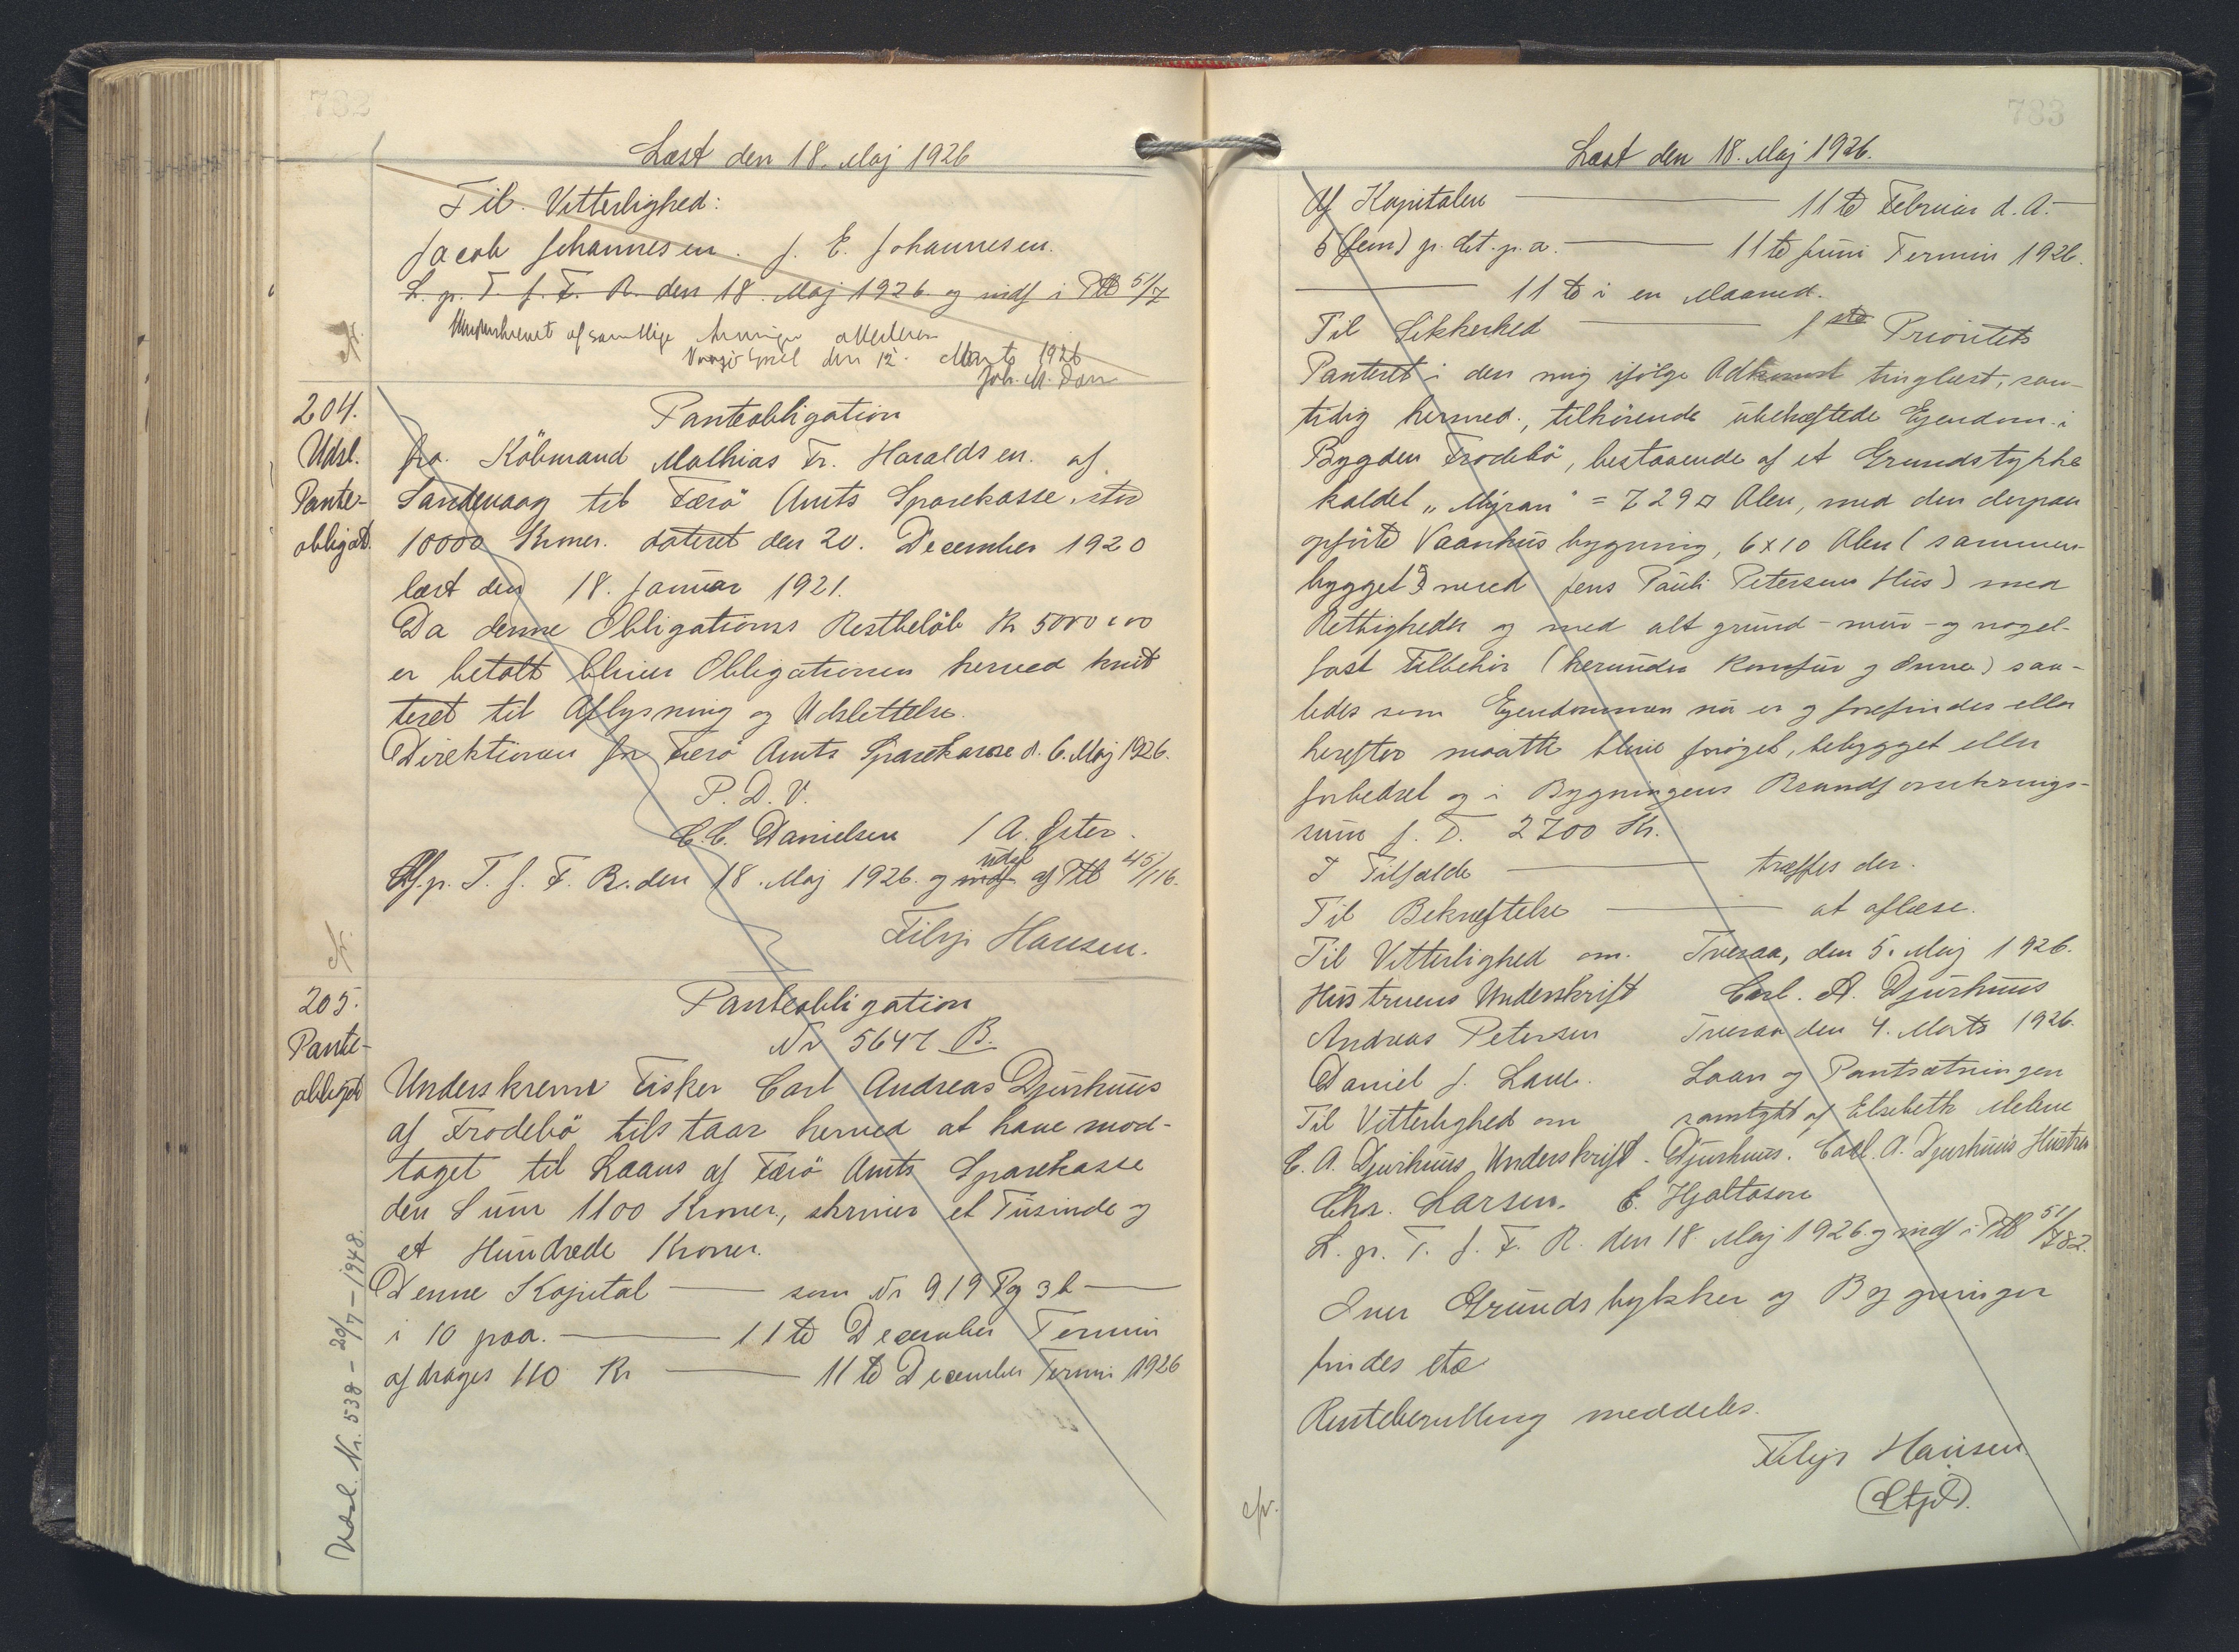 732
Læst den 18. Maj 1926
Til Vitterlighed:
Jacob Johannesen. J. E. Johannesen.
L. p. T. f. F. R. den 18. Maj 1926 og indf i Ptb 51/7
af samtlige
den 12. Marts 1926
Joh. M.
cfr.
204.
Udsl.
Pante-
obligat.
Panteobligation
fra Købmand Mathias Fr. Haraldsen af
Sandevaag til Færø Amts Sparekasse, stor
10000 Kroner. dateret den 20. December 1920
læst den 18. Januar 1921.
Da denne Obligations Restbeløb Kr 5000,00
er betalt bliver Obligationen herved kvit
teret til Aflysning og Udslettelse.
Direktionen for Færø Amts Sparekasse d. 6. Maj 1926.
P. D. V.
C. C. Danielsen / A. Øster.
Afl. p. T. f. F. R. den 18. Maj 1926. og indf udsl af Ptb 45/116.
Filip Hansen.
cfr.
205.
Pante-
obligat
Panteobligation
Nr 5647 B.
Underskrevne Fisker Carl Andreas Djurhuus
af Frodebø tilstaar herved at have mod-
taget til Laans af Færø Amts Sparekasse
den Sum 1100 Kroner, skriver et Tusinde og
et Hundrede Kroner.
Denne Kapital — som Nr 919 Pg 3b —
i 10 paa. — 11te December Termin
afdrages 110 Kr — 11te December Termin 1926
Udsl. Nr. 538 - 20/7 - 1948.
733
Læst den 18. Maj 1926.
Af Kapitalen — 11te Februar d. A. —
5 (fem) p. ct. p. a. — 11te Juni Termin 1926.
— 11te i en Maaned.
Til Sikkerhed — 1ste Prioritets
Panteret i den mig ifølge Adkomst tinglæst, sam-
tidig hermed, tilhørende ubehæftede Ejendom i
Bygden Frodebø, bestaaende af et Grundstykke
kaldet „Myran" = 729 □ Alen, med den derpaa
opførte Vaanhusbygning, 6x10 Alen (sammen-
bygget med Jens Pauli Petersens Hus) med
Rettigheder og med alt grund- mur- og nagel-
fast Tilbehør (herunder Komfur og Ovne) saa-
ledes som Ejendommen nu er og forefindes eller
herefter maatte blive forøget, bebygget eller
forbedret og i Bygningens Brandforsikrings-
sum f. T. 2700 Kr.
I Tilfælde — træffes der.
Til Bekræftelse — at aflæse.
Til Vitterlighed om Tveraa, den 5. Maj 1926.
Hustruens Underskrift Carl. A. Djurhuus
Andreas Petersen Tveraa den 4. Marts 1926.
Daniel J. Laue. Laan og Pantsætningen
Til Vitterlighed om samtykt af Elsebeth Melene
C. A. Djurhuus Underskrift. Djurhuus. Carl. A. Djurhuus Hustru
Chr. Larsen. E. Hjaltason
L. p. T. f. F. R. den 18. Maj 1926. og indf i Ptb 51/782.
Over Grundstykker og Bygninger
findes etc
Rentebevilling meddeles.
Filip Hansen
(Stpl).
cfr.